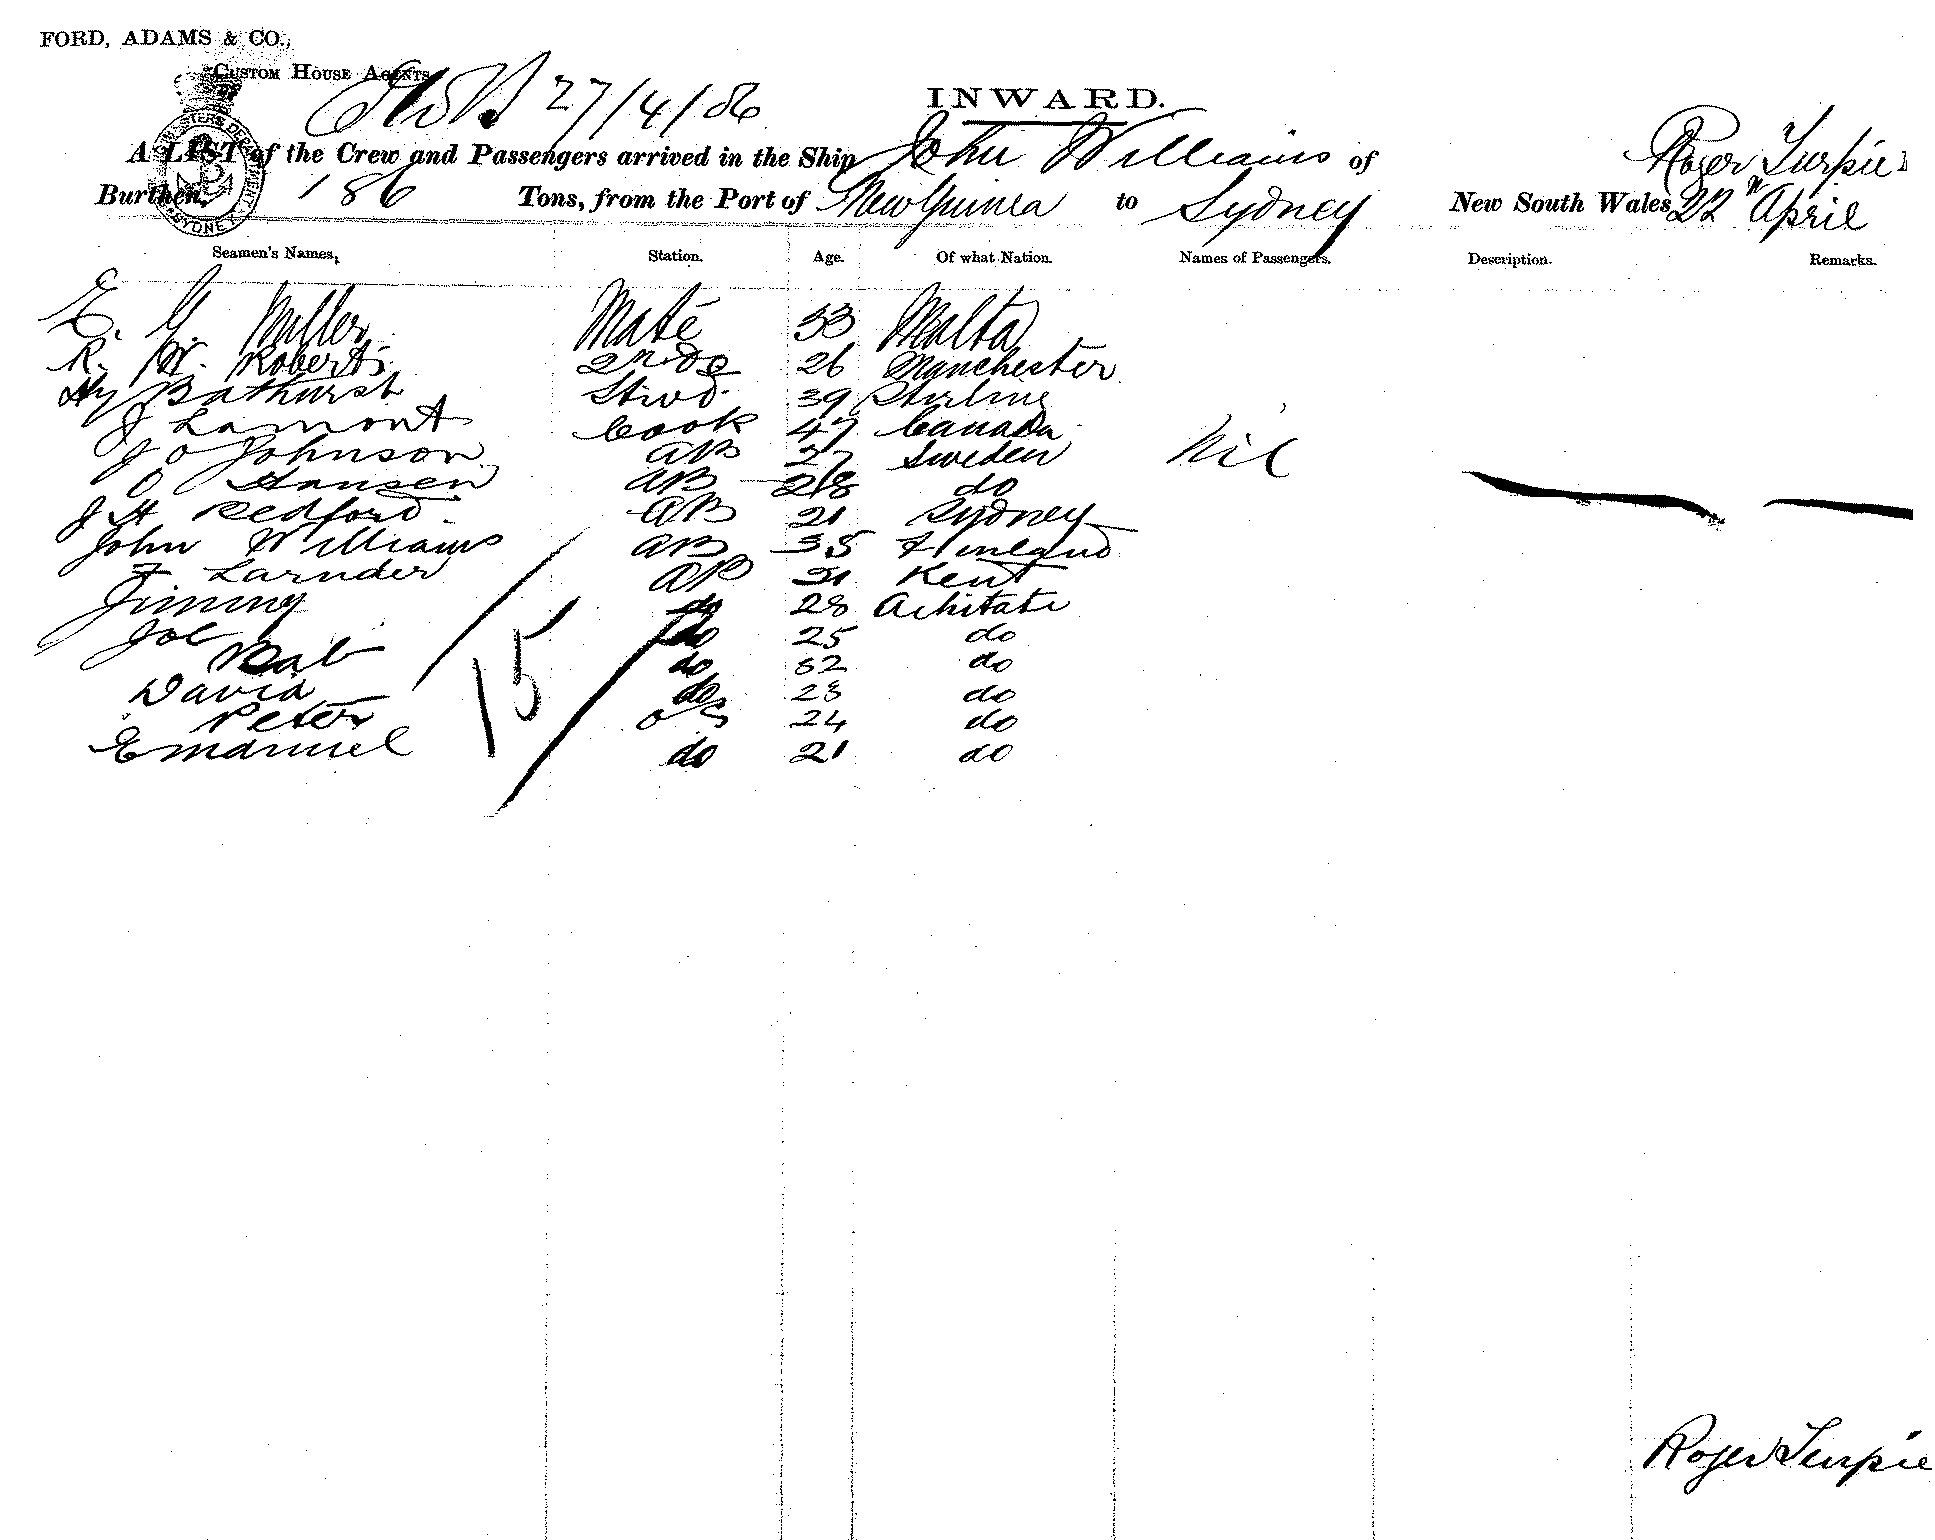 FORD, ADAMS & CO.,
CUSTOM HOUSE AGENTS
27/4/86
INWARD.
A LIST of the Crew and Passengers arrived in the Ship John Williams of Roger Turpie
Burthen, 186 Tons, from the Port of New Guinea to Sydney New South Wales 22 April
Seamen's Names, Station. Age. Of what Nation. Names of Passengers. Description. Remarks.
E. G. Miller Mate 33 Malta
R. W. Roberts 2nd do 26 Manchester
Hy Bathurst Stwd. 39 Stirling
J Lamont Cook 47 Canada
J O Johnson AB 27 Sweden Nil
O Hansen AB 28 do
J H Redford AB 21 Sydney
John Williams AB 35 Finland
F Larnder AB 21 Kent
Jimmy do 28
Job do 25 do
Bab do 32 do
David do 23 do
Peter OS 24 do
Emanuel do 21 do
15
Roger Turpie